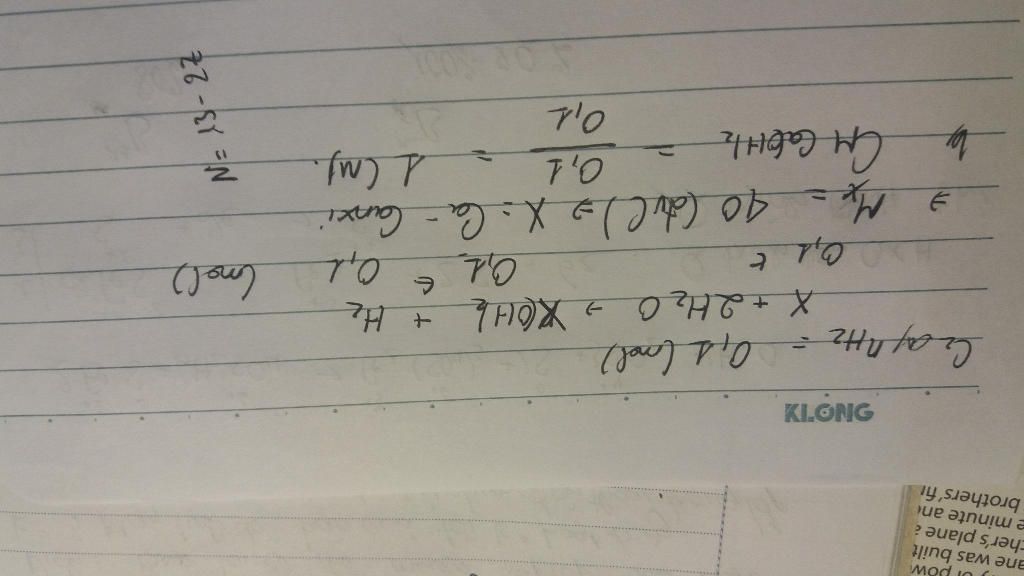 KLONG
C2 a, nH2 = 0,1 (mol)
X + 2H2O → X(OH)2 + H2
0,1 ← 0,1 ← 0,1 (mol)
⇒ Mx = 40 (đvC) ⇒ X = Ca - Canxi
b, CM Ca(OH)2 = 0,1 / 0,1 = 1 (M).
brother's
minute and
plane
ane was built